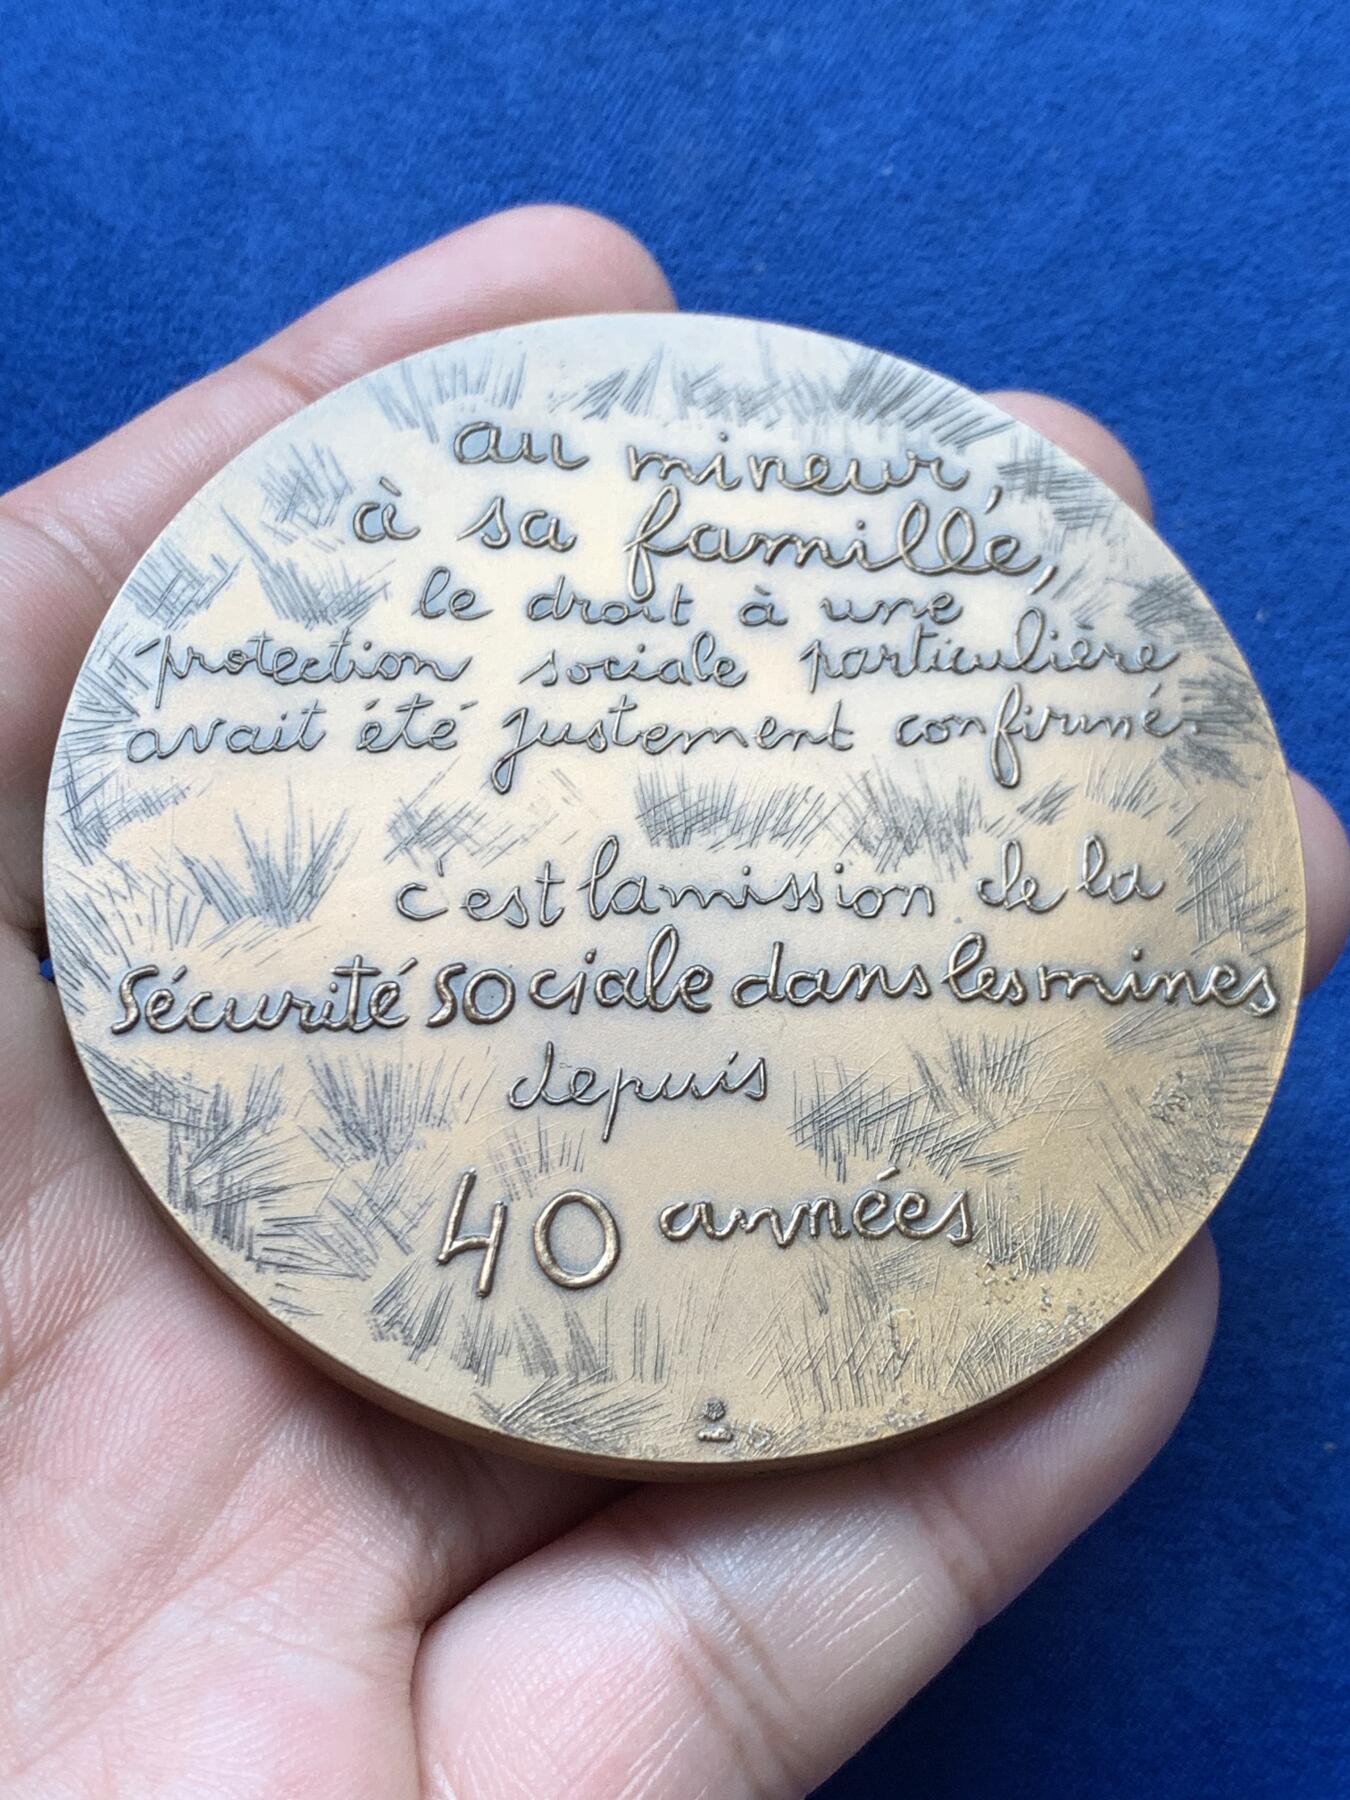 au mineur,
à sa famille,
le droit à une
protection sociale particulière
avait été justement confirmé.
c'est la mission de la
sécurité sociale dans les mines
depuis
40 années